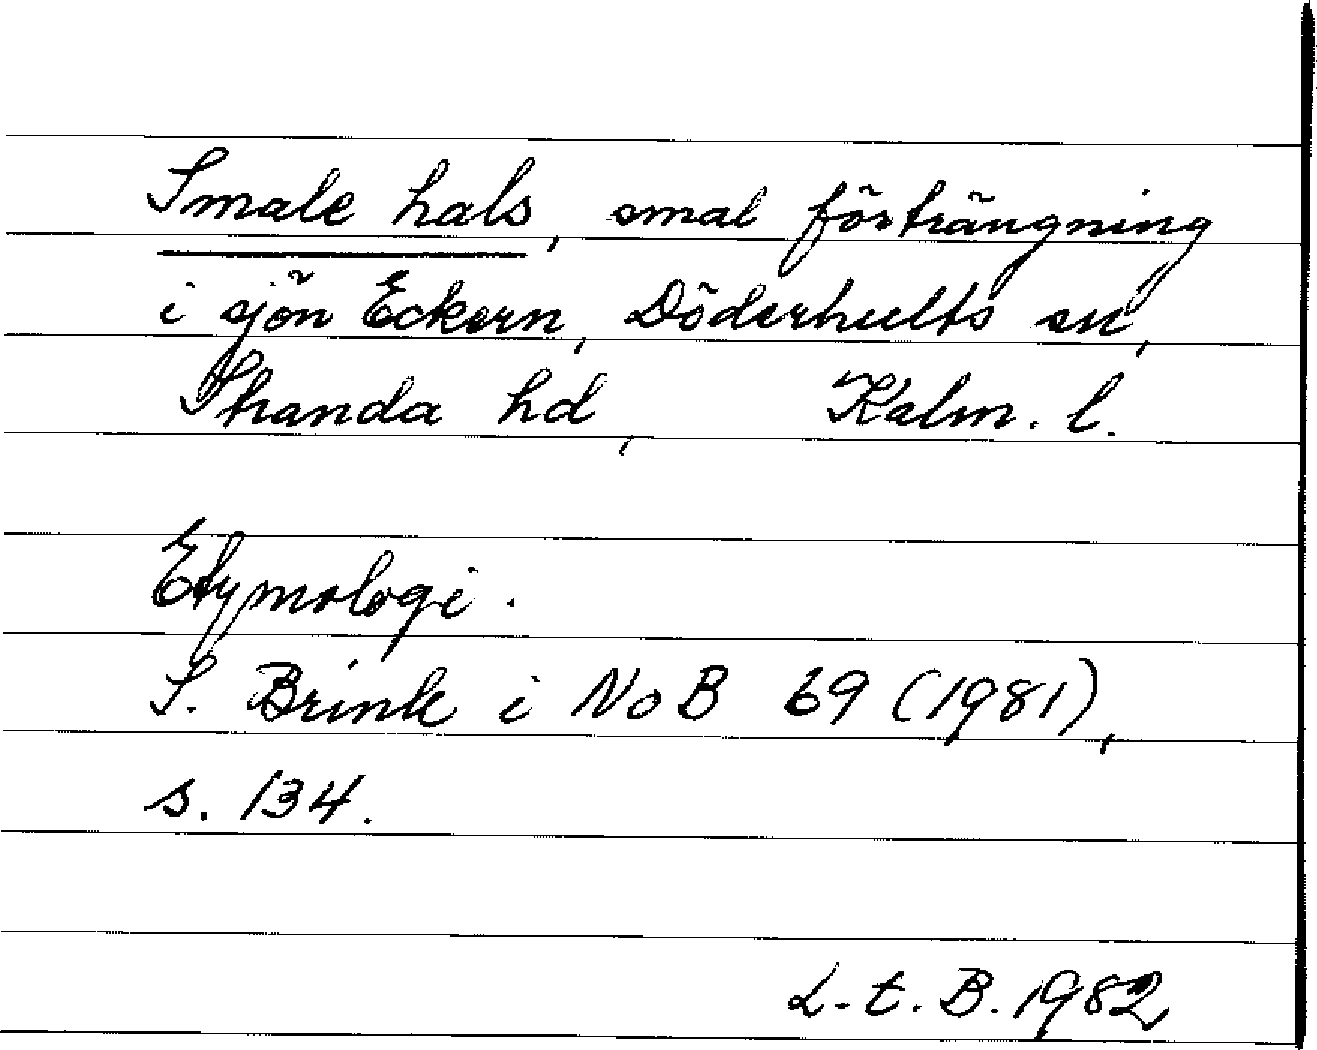 Smale hals, smal förträngning
i sjön Eckern, Döderhults sn,
Stranda hd, Kalm. l.
Etymologi.
S. Brink i NoB 69 (1981),
s. 134.
L.t.B. 1982